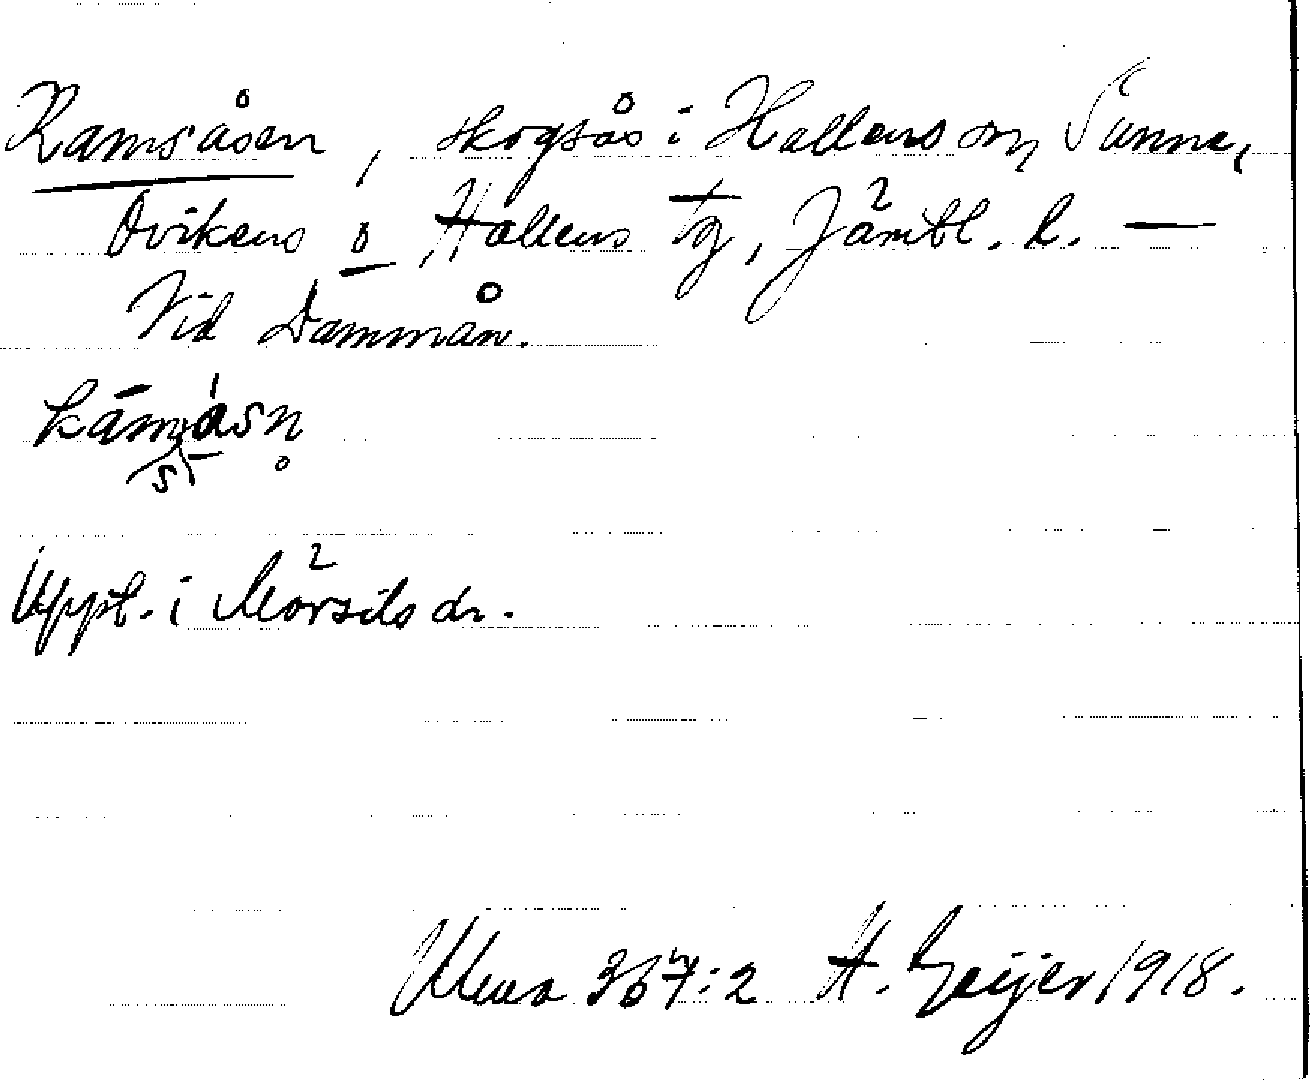 Ramsåsen, skogsås i Hallens sn, Sunne,
Ovikens o Hallens tg, Jämtl. l. —
Vid Dammån.
Uppt. i Mörsils sn.
Ulma 367:2 H. Geijer 1918.